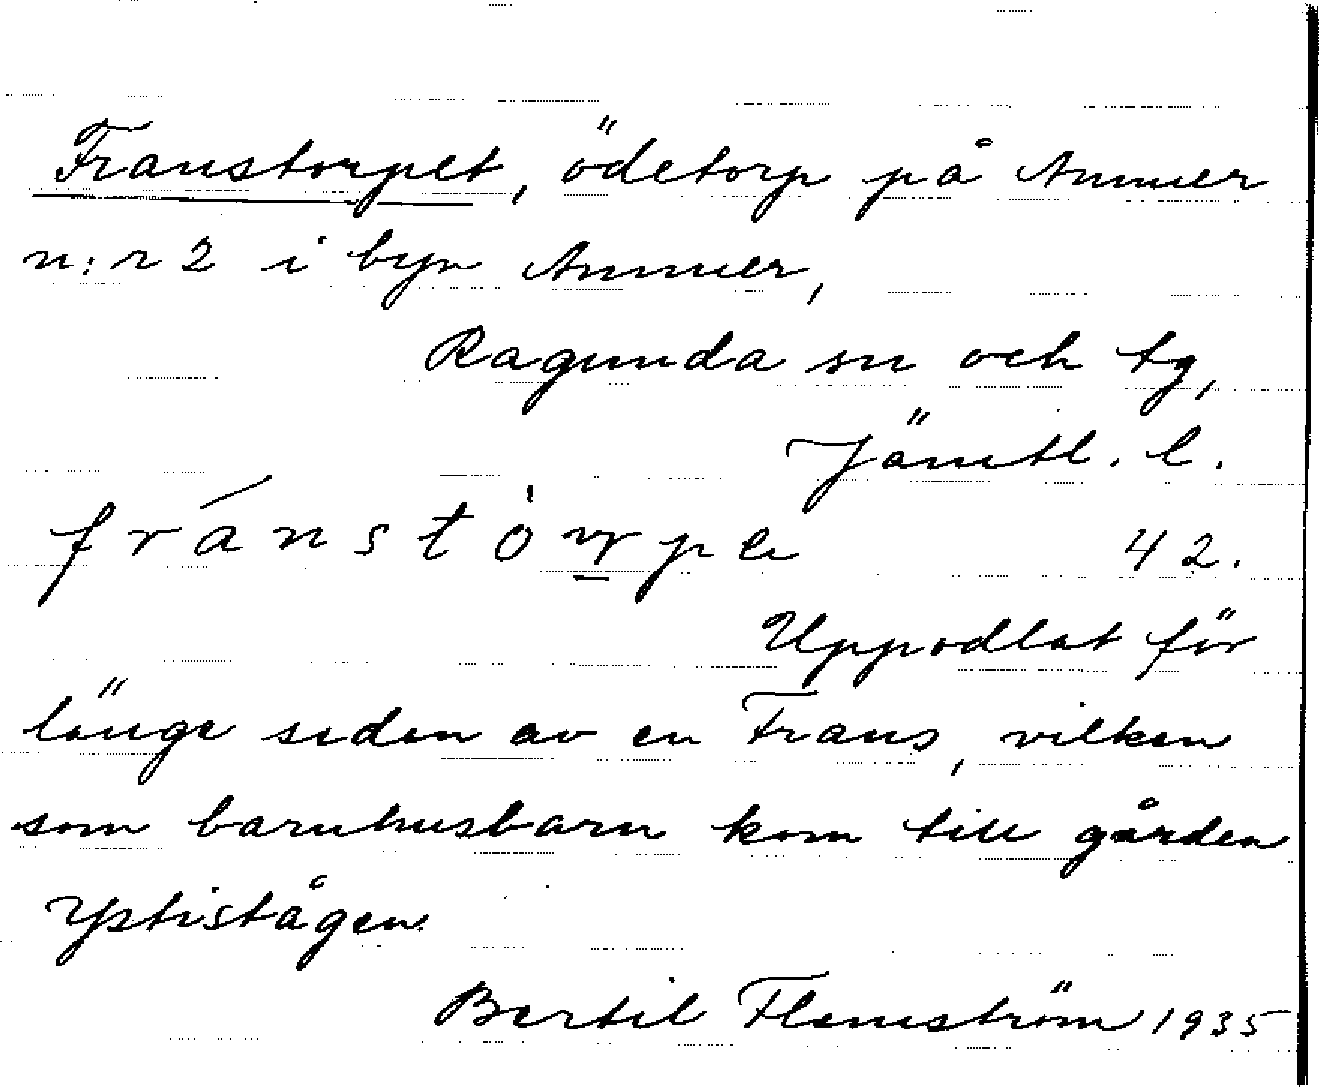 Franstorpet, ödetorp på Ammer
n:r 2 i byn Ammer,
Ragunda sn och tg,
Jämtl. l.
fránstòrpe 42.
Uppodlat för
länge sedan av en Frans, vilken
som barnhusbarn kom till gården
Ystistågen.
Bertil Flemström 1935